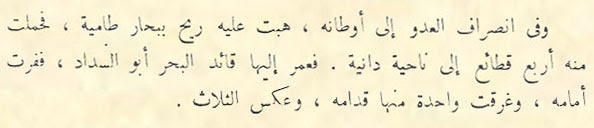 وفى انصراف العدو إلى أوطانه ، هبت عليه ريح ببحار طامية ، فحملت
منه أربع قطائع إلى ناحية دانية . فعمر إليها قائد البحر أبو السداد ، ففرت
أمامه ، وغرقت واحدة منها قدامه ، وعكس الثلاث .